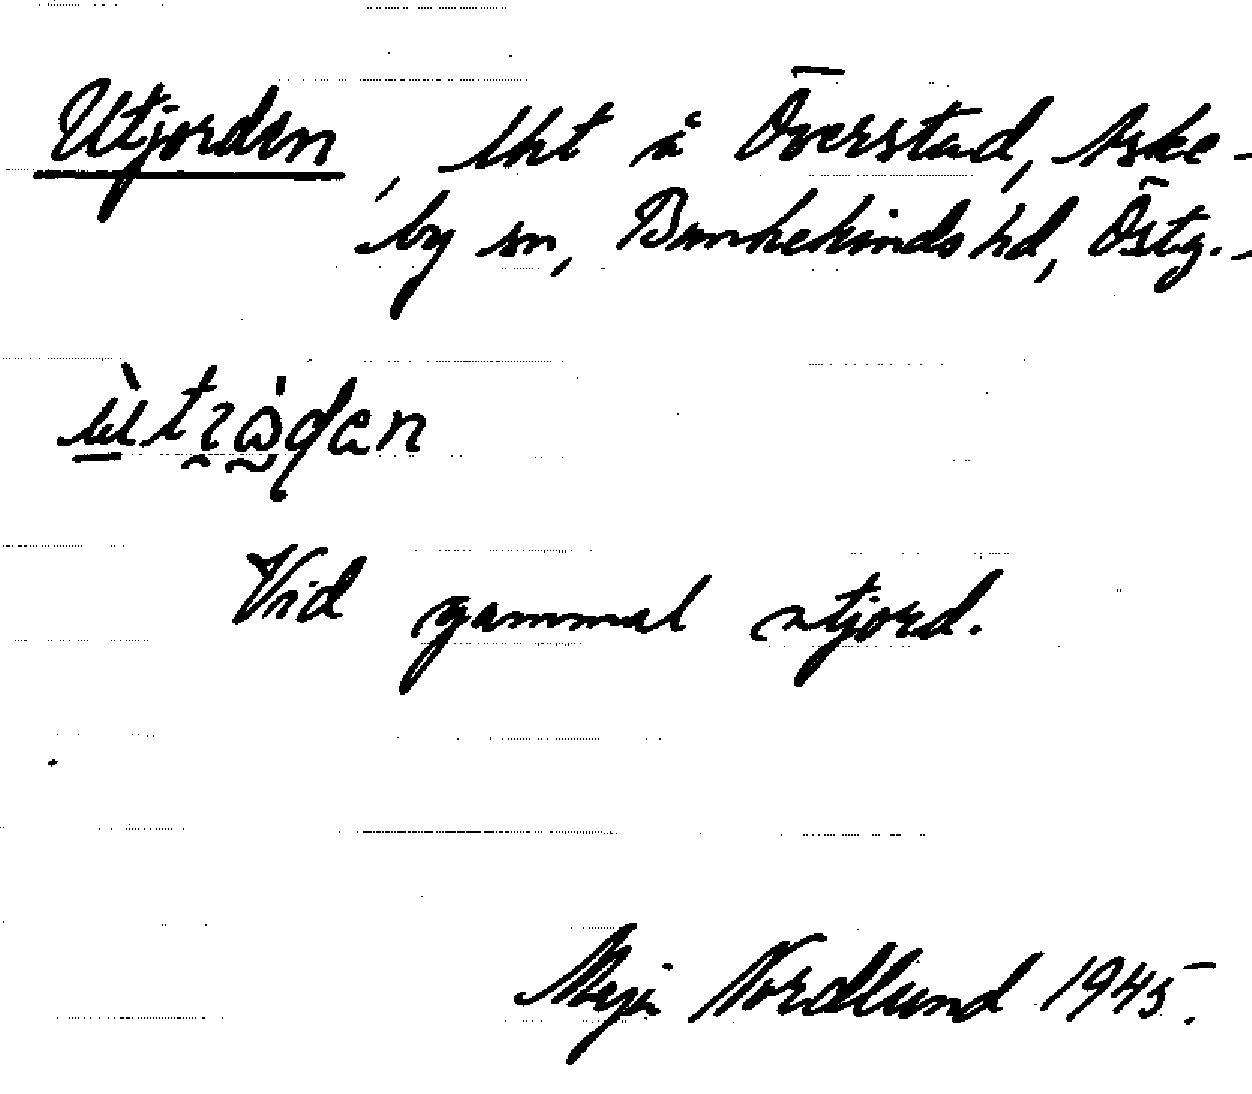 Utjorden, lht å Överstad, Aske-
by sn, Bankekinds hd, Östg.-
Vid gammal utjord.
Maja Nordlund 1945.